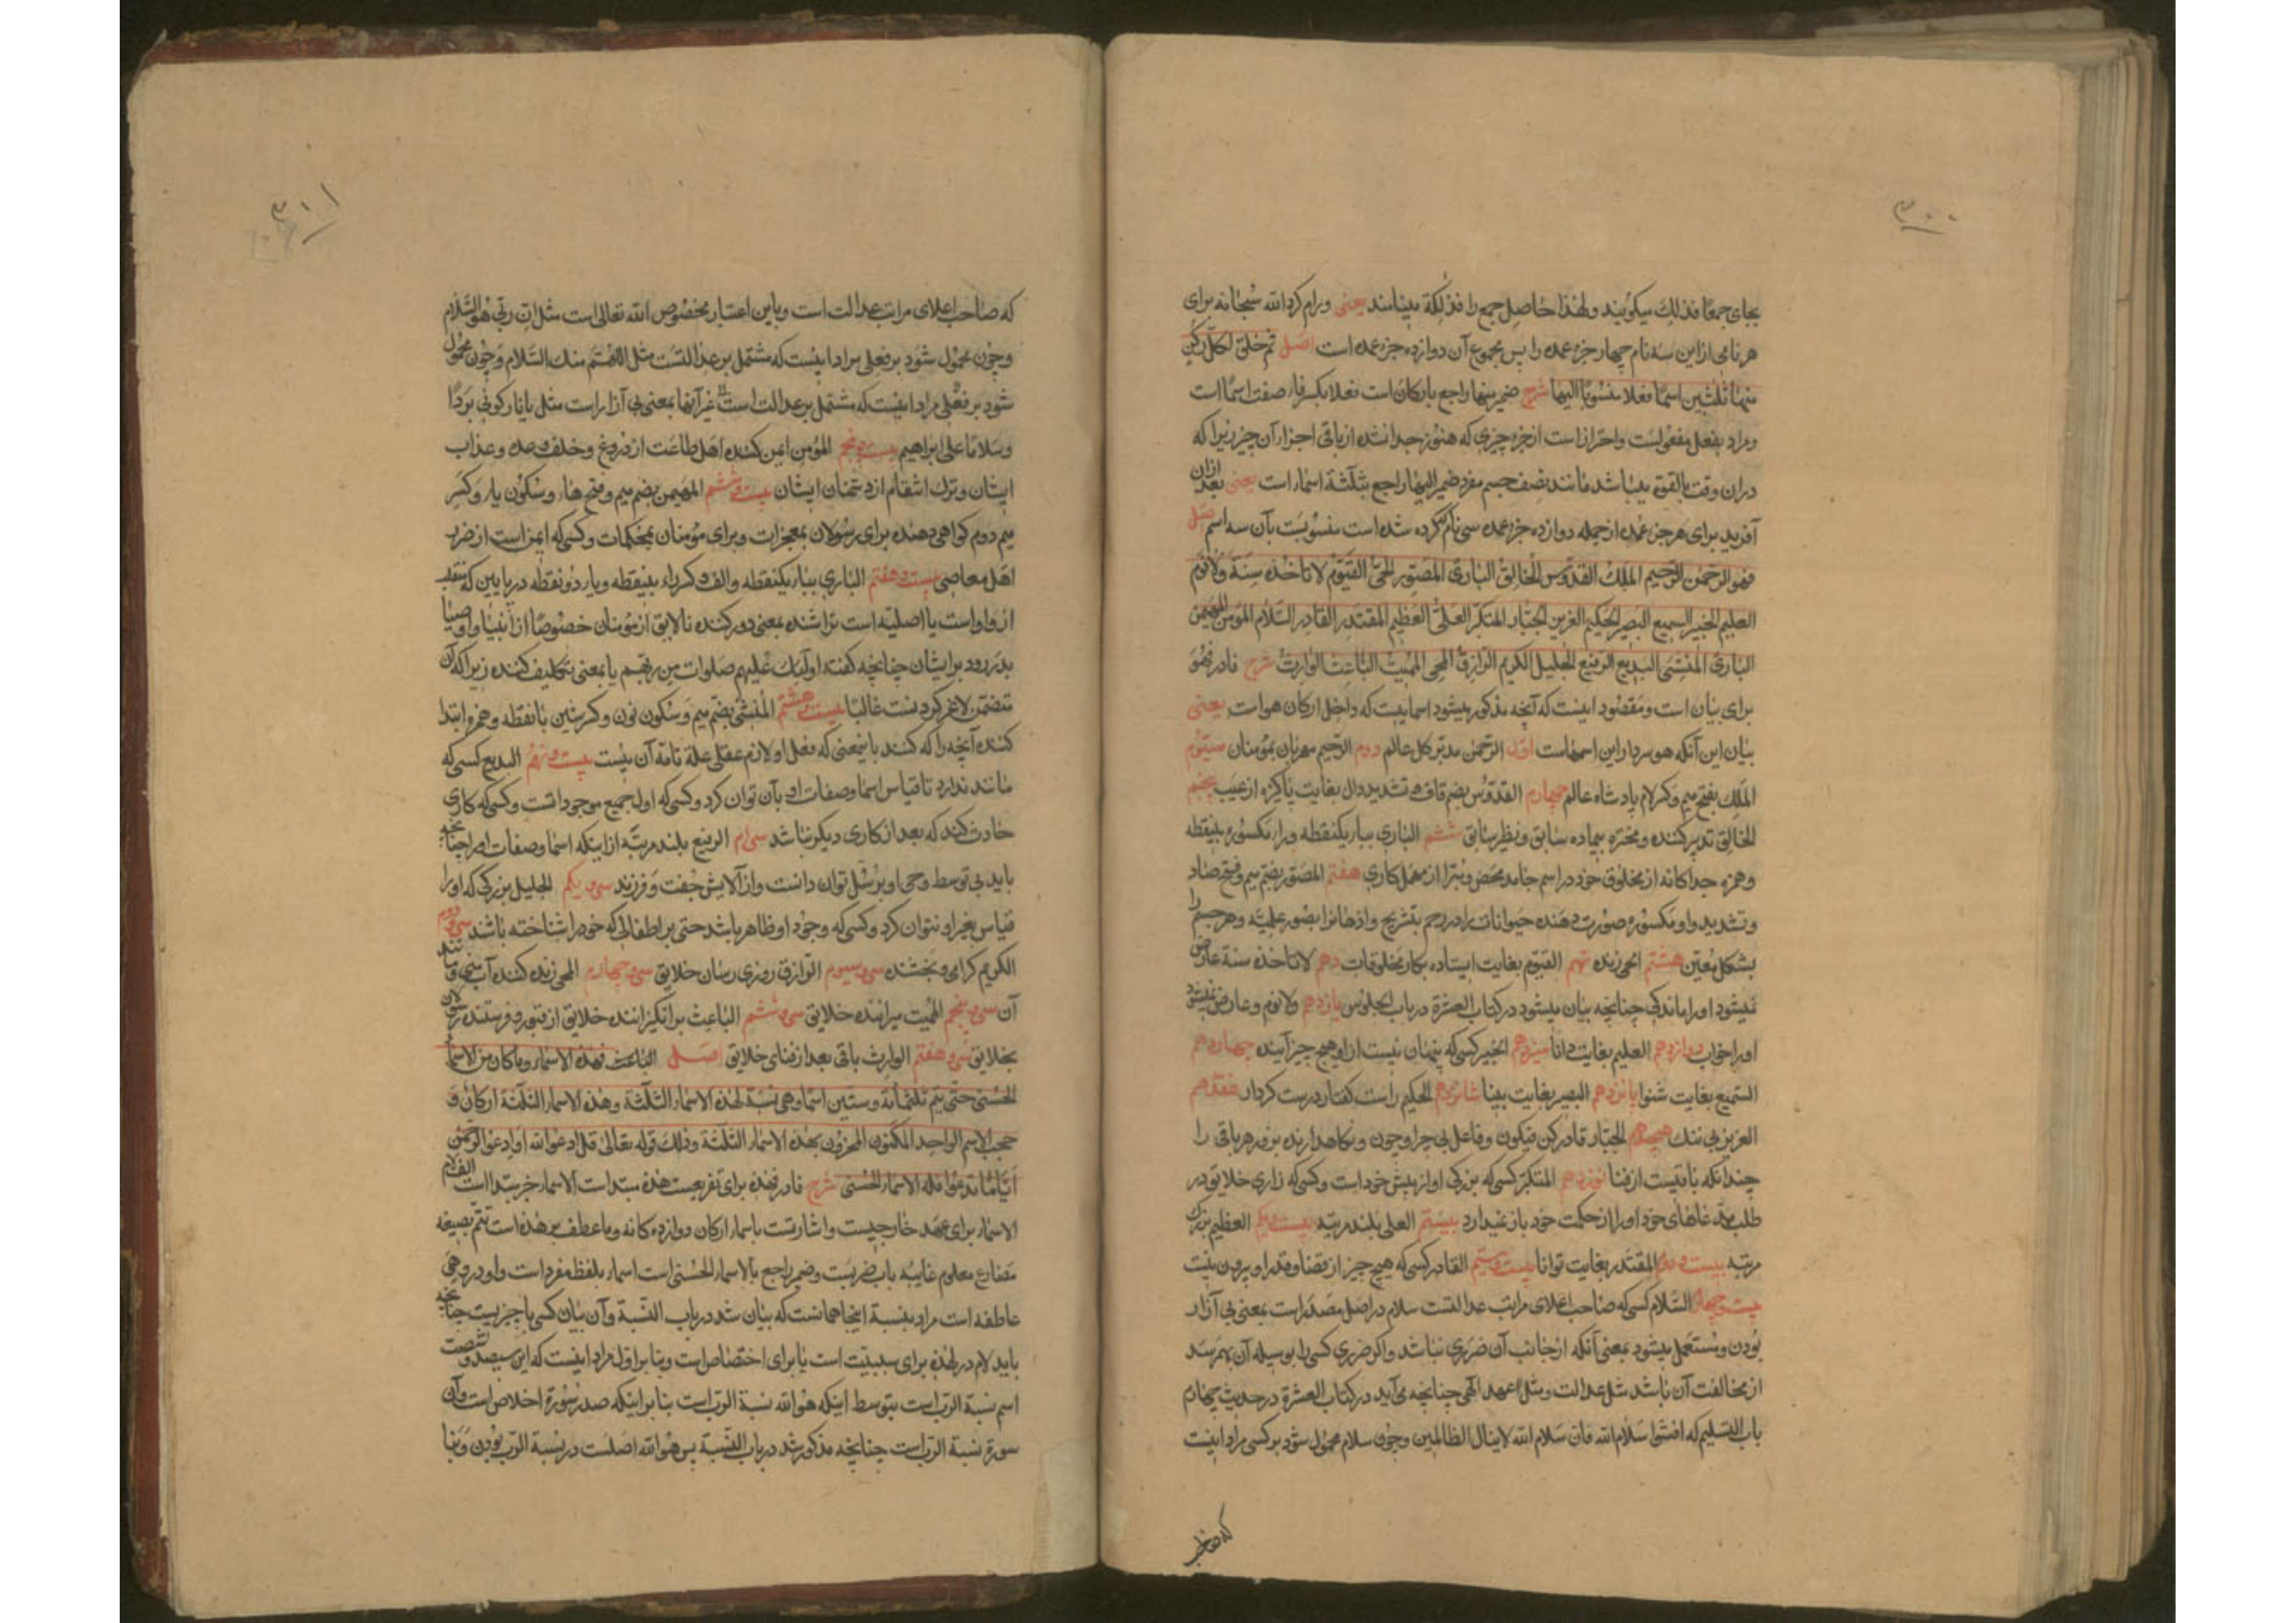 ۳۰۰
بجای جمعا فذلك میکویند ولهذا حاصل جمع را فذلکة مینامند یعنی ورام کرد الله سبحانه برای
هر نامی از این سه نام چهار جزء عمده را پس مجموع آن دوازده جزء عمده است اصل ثم خلق لکل رکن
منها ثلثین اسما فعلا منسوبا الیها شرح ضمیر منها راجع بارکان است فعلا بکسر فاء صفت اسما است
ومراد بفعل مفعولست واحتراز است از جزء چیزی که هنوز جدا نشده از باقی اجزاء آن چیز زیرا که
دران وقت بالقوة میباشد مانند نصف جسم مفرد ضمیر الیها راجع بثلثة اسماء است یعنی بعد ازان
آفرید برای هر جزء عمده از جمله دوازده جزء عمده سی نام کرده شده است منسوبست بآن سه اسم اصل
فهو الرحمن الرحیم الملك القدوس الخالق الباری المصور الحی القیوم لا تاخذه سنة ولا نوم
العلیم الخبیر السمیع البصیر الحکیم العزیز الجبار المتکبر العلی العظیم المقتدر القادر السلام المؤمن المهیمن
الباری المنشی البدیع الرفیع الجلیل الکریم الرازق المحیی الممیت الباعث الوارث شرح فا در فهو
برای بیان است ومقصود اینست که آنچه مذکور میشود اسمائیست که داخل ارکان هو است یعنی
بیان این آنکه هو سردار این اسمهاست اول الرحمن مدبر کل عالم دوم الرحیم مهربان بمؤمنان سیوم
الملك بفتح میم وکسر لام پادشاه عالم چهارم القدوس بضم قاف وتشدید دال بغایت پاکیزه از عیب پنجم
الخالق تدبیر کننده ومخترع بیماده سابق ونظیر سابق ششم الباری بباء یکنقطه وراء مکسوره بینقطه
وهمزه جدا کانه از مخلوق خود در اسم جامد محض ومبرا از مهمل کاری هفتم المصور بضم میم وفتح صاد
وتشدید واو مکسوره صورت دهنده حیوانات را در رحم بتشریح واذهانرا بصور علمیه وهر جسم را
بشکل معین هشتم الحی زنده نهم القیوم بغایت ایستاده بکار مخلوقات دهم لا تاخذه سنة عارض
نمیشود اورا ماندکی چنانچه بیان میشود در کتاب العشرة در باب الجلوس یازدهم ولا نوم وعارض نمیشود
اورا خواب دوازدهم العلیم بغایت دانا سیزدهم الخبیر کسی که پنهان نیست از او هیچ چیز آینده چهاردهم
السمیع بغایت شنوا پانزدهم البصیر بغایت بینا شانزدهم الحکیم راست کفتار درست کردار هفدهم
العزیز بی ننك هیجدهم الجبار قادر کن فیکون وفاعل بی چرا وچون ونکاهدارنده بزور هر باقی را
چندانکه باقیست از فنا نوزدهم المتکبر کسی که بزرکی او از پیش خود است وکسی که زاری خلایق در
طلب مدعاهای خود اورا از حکمت خود باز نمیدارد بیستم العلی بلند مرتبه بیست ویکم العظیم بزرك
مرتبه بیست ودوم المقتدر بغایت توانا بیست وسیم القادر کسی که هیچ چیز از قضا وقدر او بیرون نیست
بیست وچهارم السلام کسی که صاحب اعلای مراتب عدالتست سلام در اصل مصدر است بمعنی بی آزار
بودن ومستعمل میشود بمعنی آنکه از جانب آن ضرری نباشد واکر ضرری کسی را بوسیله آن بهم رسد
از مخالفت آن باشد مثل عدالت ومثل عهد الهی چنانچه می آید در کتاب العشرة در حدیث چهارم
باب التسلیم که افشوا سلام الله فان سلام الله لا ینال الظالمین وچون سلام محمول شود بر کسی مراد اینست
که صاحب
۳۰۱
که صاحب اعلای مراتب عدالت است وباین اعتبار مخصوص الله تعالی است مثل ان ربی هو السلام
وچون محمول شود بر فعلی مراد اینست که مشتمل بر عدالتست مثل اللهم منك السلام وچون محمول
شود بر فعلی مراد اینست که مشتمل بر عدالت است غیر آنها بمعنی بی آزار است مثل یا نار کونی بردا
وسلاما علی ابراهیم بیست وپنجم المؤمن ایمن کننده اهل طاعت از دروغ وخلف وعده وعذاب
ایشان وترك انتقام از دشمنان ایشان بیست وششم المهیمن بضم میم وفتح هاء وسکون یاء وکسر
میم دوم کواهی دهنده برای رسولان بمعجزات وبرای مؤمنان بمحکمات وکسی که ایمن است از ضرر
اهل معاصی بیست وهفتم الباری بباء یکنقطه والف وکسر راء بینقطه ویاء دو نقطه در پایین که منقلب
از واو است یا اصلیه است تراشنده بمعنی دور کننده نالایق از مؤمنان خصوصا از انبیا واوصیا
بدرود بر ایشان چنانچه کفته اولئك علیهم صلوات من ربهم یا بمعنی تکلیف کننده زیرا که آن
متضمن لاغر کردنست غالبا بیست وهشتم المنشی بضم میم وسکون نون وکسر شین با نقطه وهمزه ابتدا
کننده آنچه را که کند باینمعنی که فعل او لازم عقلی علة تامه آن نیست بیست ونهم البدیع کسی که
مانند ندارد تا قیاس اسما وصفات او بآن توان کرد وکسی که اول جمیع موجوداتست وکسی که کاری
حادث کند که بعد از کاری دیکر نباشد سی ام الرفیع بلند مرتبه از اینکه اسما وصفات اورا چنانچه
باید بی توسط وحی او برسل توان دانست واز آلایش جفت وفرزند سی ویکم الجلیل بزرکی که اورا
قیاس بغیر او نتوان کرد وکسی که وجود او ظاهر باشد حتی بر اطفالی که خود را شناخته باشند سی ودوم
الکریم کرامی وبخشنده سی وسیوم الرازق روزی رسان خلایق سی وچهارم المحیی زنده کننده آب منی ومانند
آن سی وپنجم الممیت میراننده خلایق سی وششم الباعث برانکیزاننده خلایق از قبور وفرستنده رسولان
بخلایق سی وهفتم الوارث باقی بعد از فنای خلایق اصل الباعث فهذه الاسماء وما کان من الاسماء
الحسنی حتی یتم ثلثمائة وستین اسما وهی نسبة لهذه الاسماء الثلثة وهذه الاسماء الثلثة ارکان و
حجب الاسم الواحد المکنون المخزون بهذه الاسماء الثلثة وذلك قوله تعالی قل ادعوا الله او ادعوا الرحمن
ایا ما تدعوا فله الاسماء الحسنی شرح فا در فهذه برای تفریعست هذه مبتداست الاسماء خبر مبتدا است الف لام
الاسماء برای عهد خارجیست واشارتست باسماء ارکان دوازده کانه وما عطف بر هذه است تتم بصیغه
مضارع معلوم غایبه باب ضربست وضمیر راجع بالاسماء الحسنی است اسماء بلفظ مفرد است واو در وهی
عاطفه است مراد بنسبة اینجا همانست که بیان شد در باب النسبة وآن بیان کسی یا چیزیست چنانچه
باید لام در لهذه برای سببیت است یا برای اختصاص است وبنا بر اول مراد اینست که این سیصد وشصت
اسم نسبة الرب است بتوسط اینکه هو الله نسبة الرب است بنا بر اینکه صدر سورة اخلاص است وآن
سورة نسبة الرب است چنانچه مذکور شد در باب النسبة پس هو الله اصلست در نسبة الرب بودن وبنا